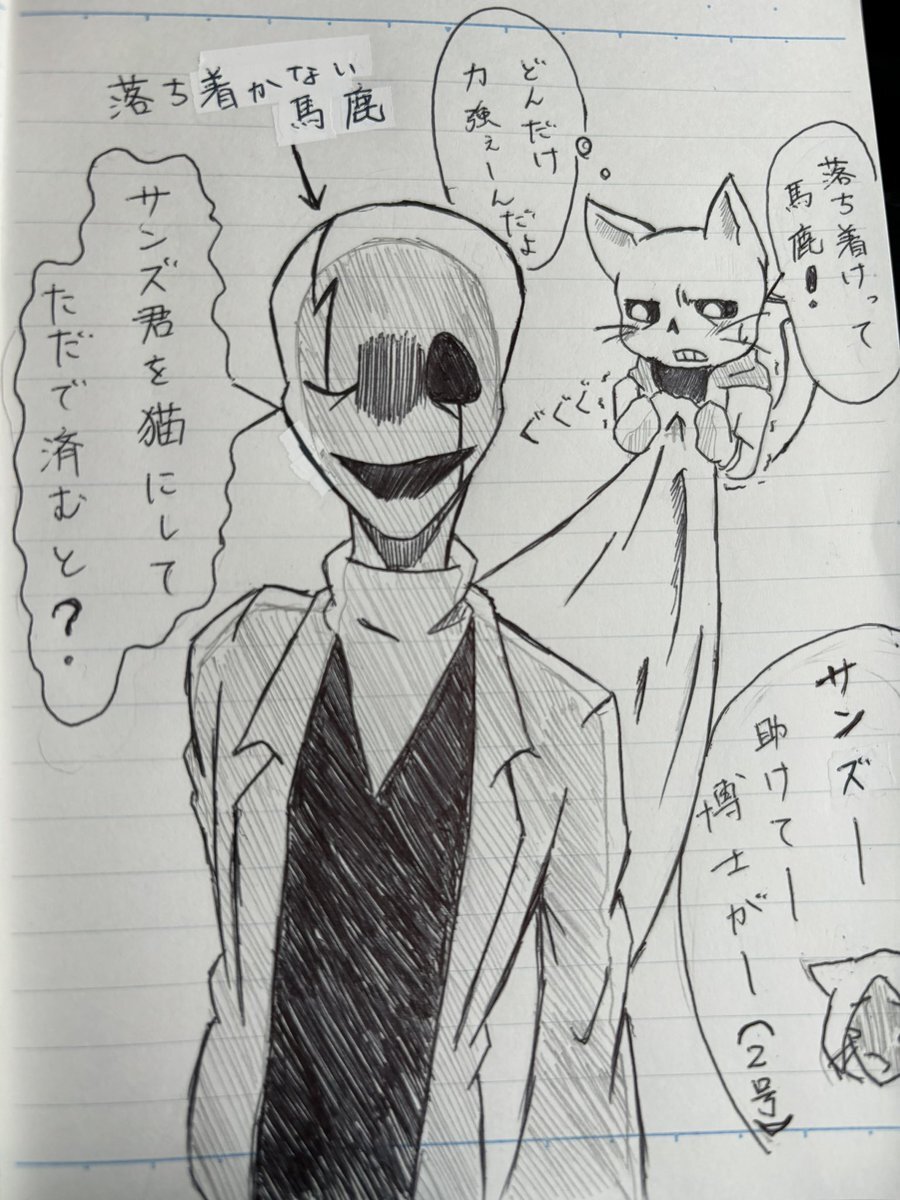 落ち着かない
馬鹿
どんだけ
力強ぇーんだよ
落ち着けって
馬鹿!
サンズ君を猫にして
ただで済むと?
ぐぐぐ
サンズー
助けてー
博士がー(2号)